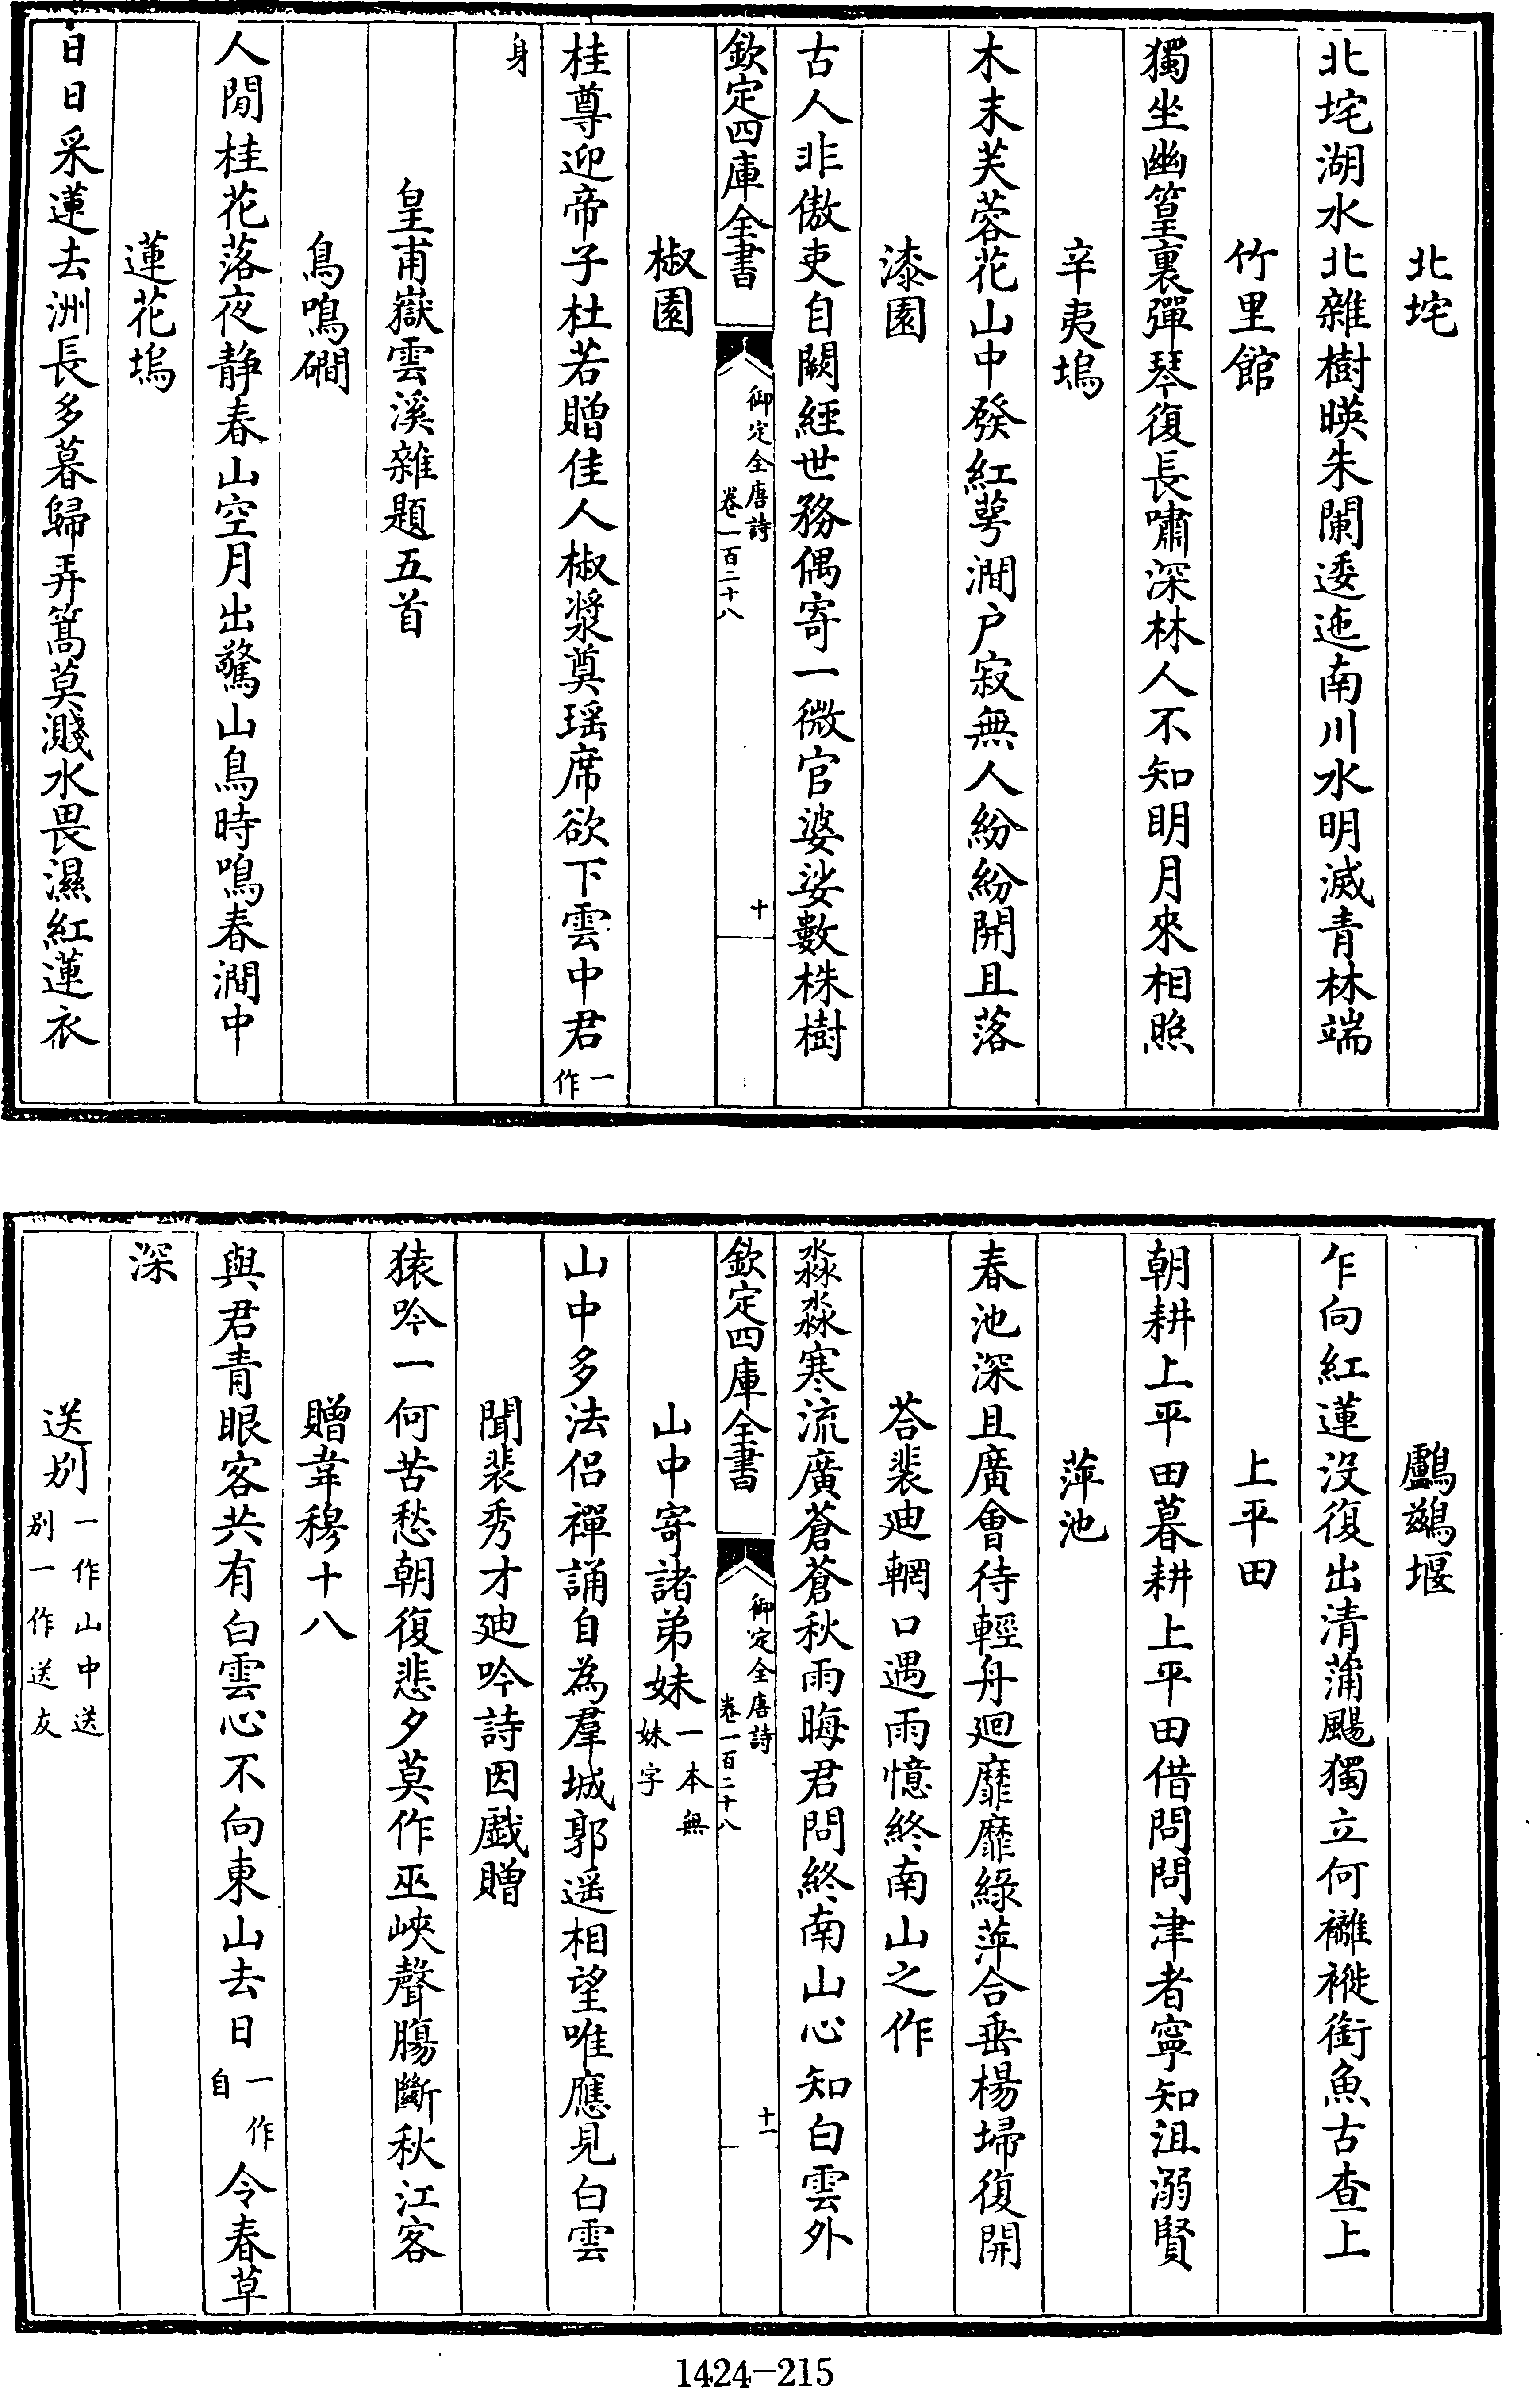 北垞
北垞湖水北雜樹暎朱闌逶迤南川水明滅青林端
竹里館
獨坐幽篁裏彈琴復長嘯深林人不知明月來相照
辛夷塢
木末芙蓉花山中發紅萼澗户寂無人紛紛開且落
漆園
古人非傲吏自闕經世務偶寄一微官婆娑數株樹
欽定四庫全書
御定全唐詩
卷一百二十八
十
椒園
桂尊迎帝子杜若贈佳人椒漿奠瑶席欲下雲中君一作
身
皇甫嶽雲溪雜題五首
鳥鳴磵
人閒桂花落夜静春山空月出驚山鳥時鳴春澗中
蓮花塢
日日采蓮去洲長多暮歸弄篙莫濺水畏濕紅蓮衣
鸕鷀堰
乍向紅蓮沒復出清蒲颺獨立何䙰褷銜魚古查上
上平田
朝耕上平田暮耕上平田借問問津者寧知沮溺賢
萍池
春池深且廣會待輕舟廻靡靡綠萍合垂楊埽復開
荅裴廸輞口遇雨憶終南山之作
淼淼寒流廣蒼蒼秋雨晦君問終南山心知白雲外
欽定四庫全書
御定全唐詩
卷一百二十八
十一
山中寄諸弟妹一本無妹字
山中多法侣禪誦自為羣城郭遥相望唯應見白雲
聞裴秀才廸吟詩因戱贈
猿吟一何苦愁朝復悲夕莫作巫峽聲腸斷秋江客
贈韋穆十八
與君青眼客共有白雲心不向東山去日一作自令春草
深
送別一作山中送別一作送友
1424-215